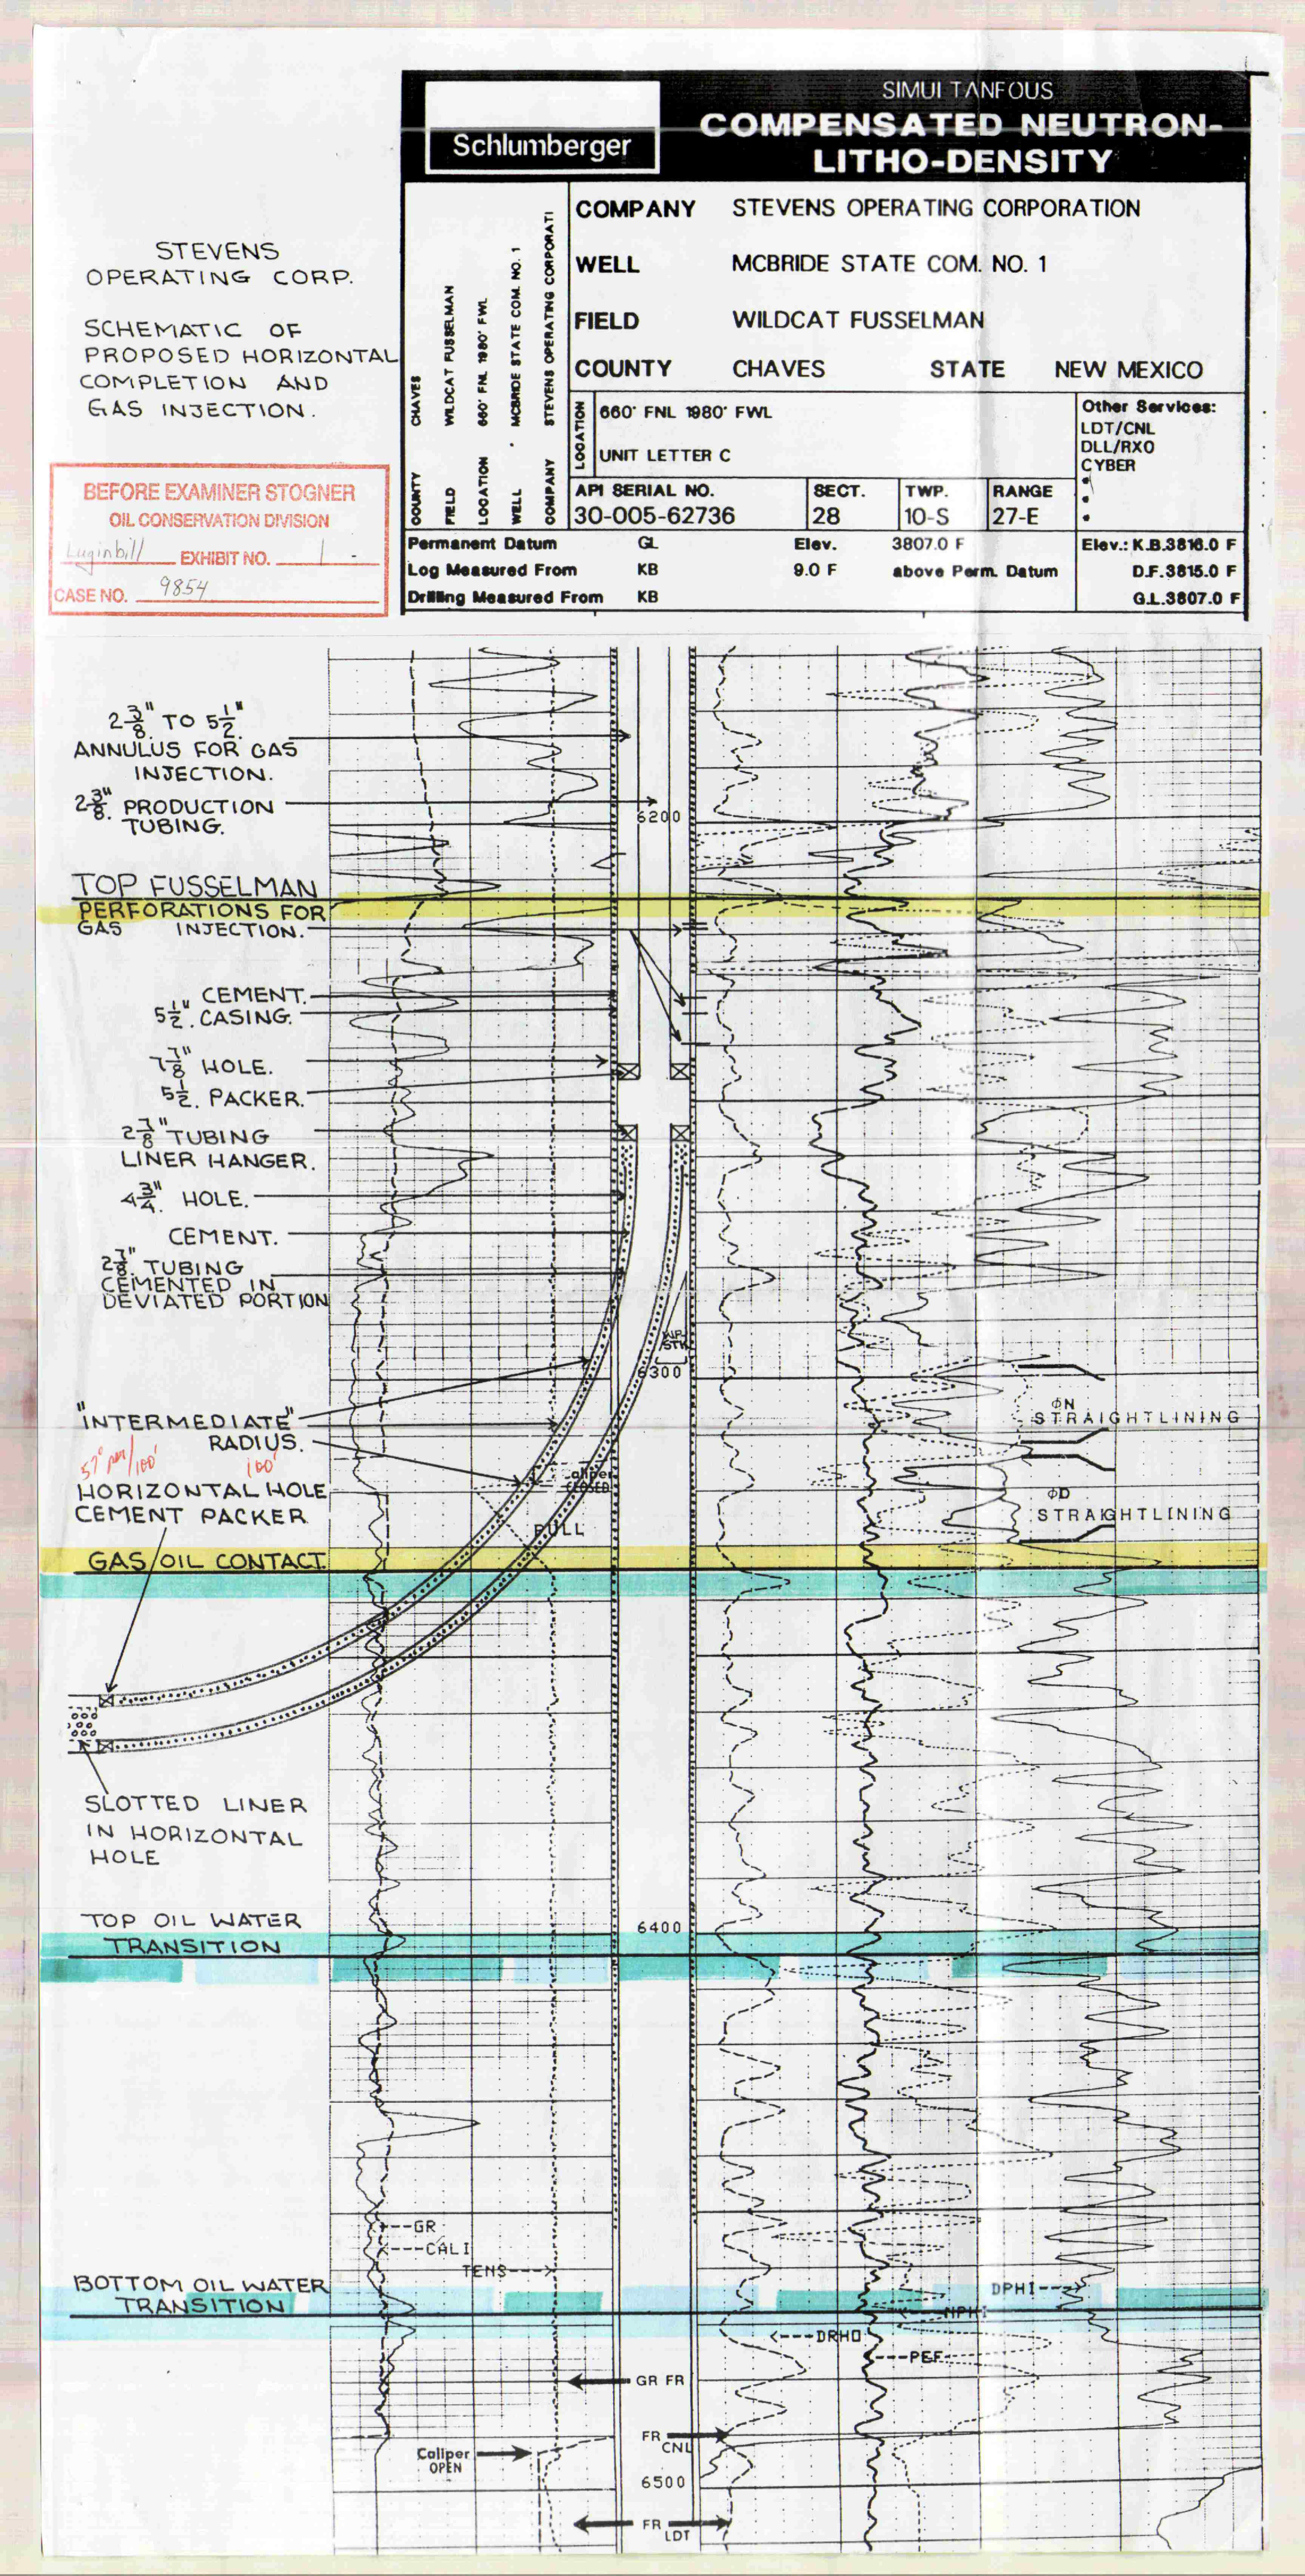 SIMUI TANFOUS
COMPENSATED NEUTRON-
LITHO-DENSITY
Schlumberger
COMPANY STEVENS OPERATING CORPORATION
WELL MCBRIDE STATE COM. NO. 1
FIELD WILDCAT FUSSELMAN
COUNTY CHAVES STATE NEW MEXICO
LOCATION
660' FNL 1980' FWL
UNIT LETTER C
Other Services:
LDT/CNL
DLL/RXO
CYBER
API SERIAL NO. SECT. TWP. RANGE
30-005-62736 28 10-S 27-E
Permanent Datum GL Elev. 3807.0 F Elev.: K.B.3816.0 F
Log Measured From KB 9.0 F above Perm. Datum D.F.3815.0 F
Drilling Measured From KB G.L.3807.0 F
COUNTY CHAVES
FIELD WILDCAT FUSSELMAN
LOCATION 660' FNL 1980' FWL
WELL MCBRIDE STATE COM. NO. 1
COMPANY STEVENS OPERATING CORPORATI
STEVENS
OPERATING CORP.
SCHEMATIC OF
PROPOSED HORIZONTAL
COMPLETION AND
GAS INJECTION.
BEFORE EXAMINER STOGNER
OIL CONSERVATION DIVISION
Luginbill EXHIBIT NO. 1
CASE NO. 9854
2 3/8" TO 5 1/2"
ANNULUS FOR GAS
INJECTION.
2 3/8" PRODUCTION
TUBING.
6200
TOP FUSSELMAN
PERFORATIONS FOR
GAS INJECTION.
CEMENT.
5 1/2" CASING.
7 7/8" HOLE.
5 1/2" PACKER.
2 7/8" TUBING
LINER HANGER.
4 3/4" HOLE.
CEMENT.
2 7/8" TUBING
CEMENTED IN
DEVIATED PORTION
WP
STK
6300
"INTERMEDIATE"
RADIUS.
57° per/100'
100'
ΦN
STRAIGHTLINING
HORIZONTAL HOLE
CEMENT PACKER
aliper
CLOSED
PULL
ΦD
STRAIGHTLINING
GAS OIL CONTACT.
SLOTTED LINER
IN HORIZONTAL
HOLE
TOP OIL WATER
TRANSITION
6400
GR
CALI
TENS
BOTTOM OIL WATER
TRANSITION
DPHI
NPHI
DRHO
PEF
GR FR
FR
CNL
Caliper
OPEN
6500
FR
LDT